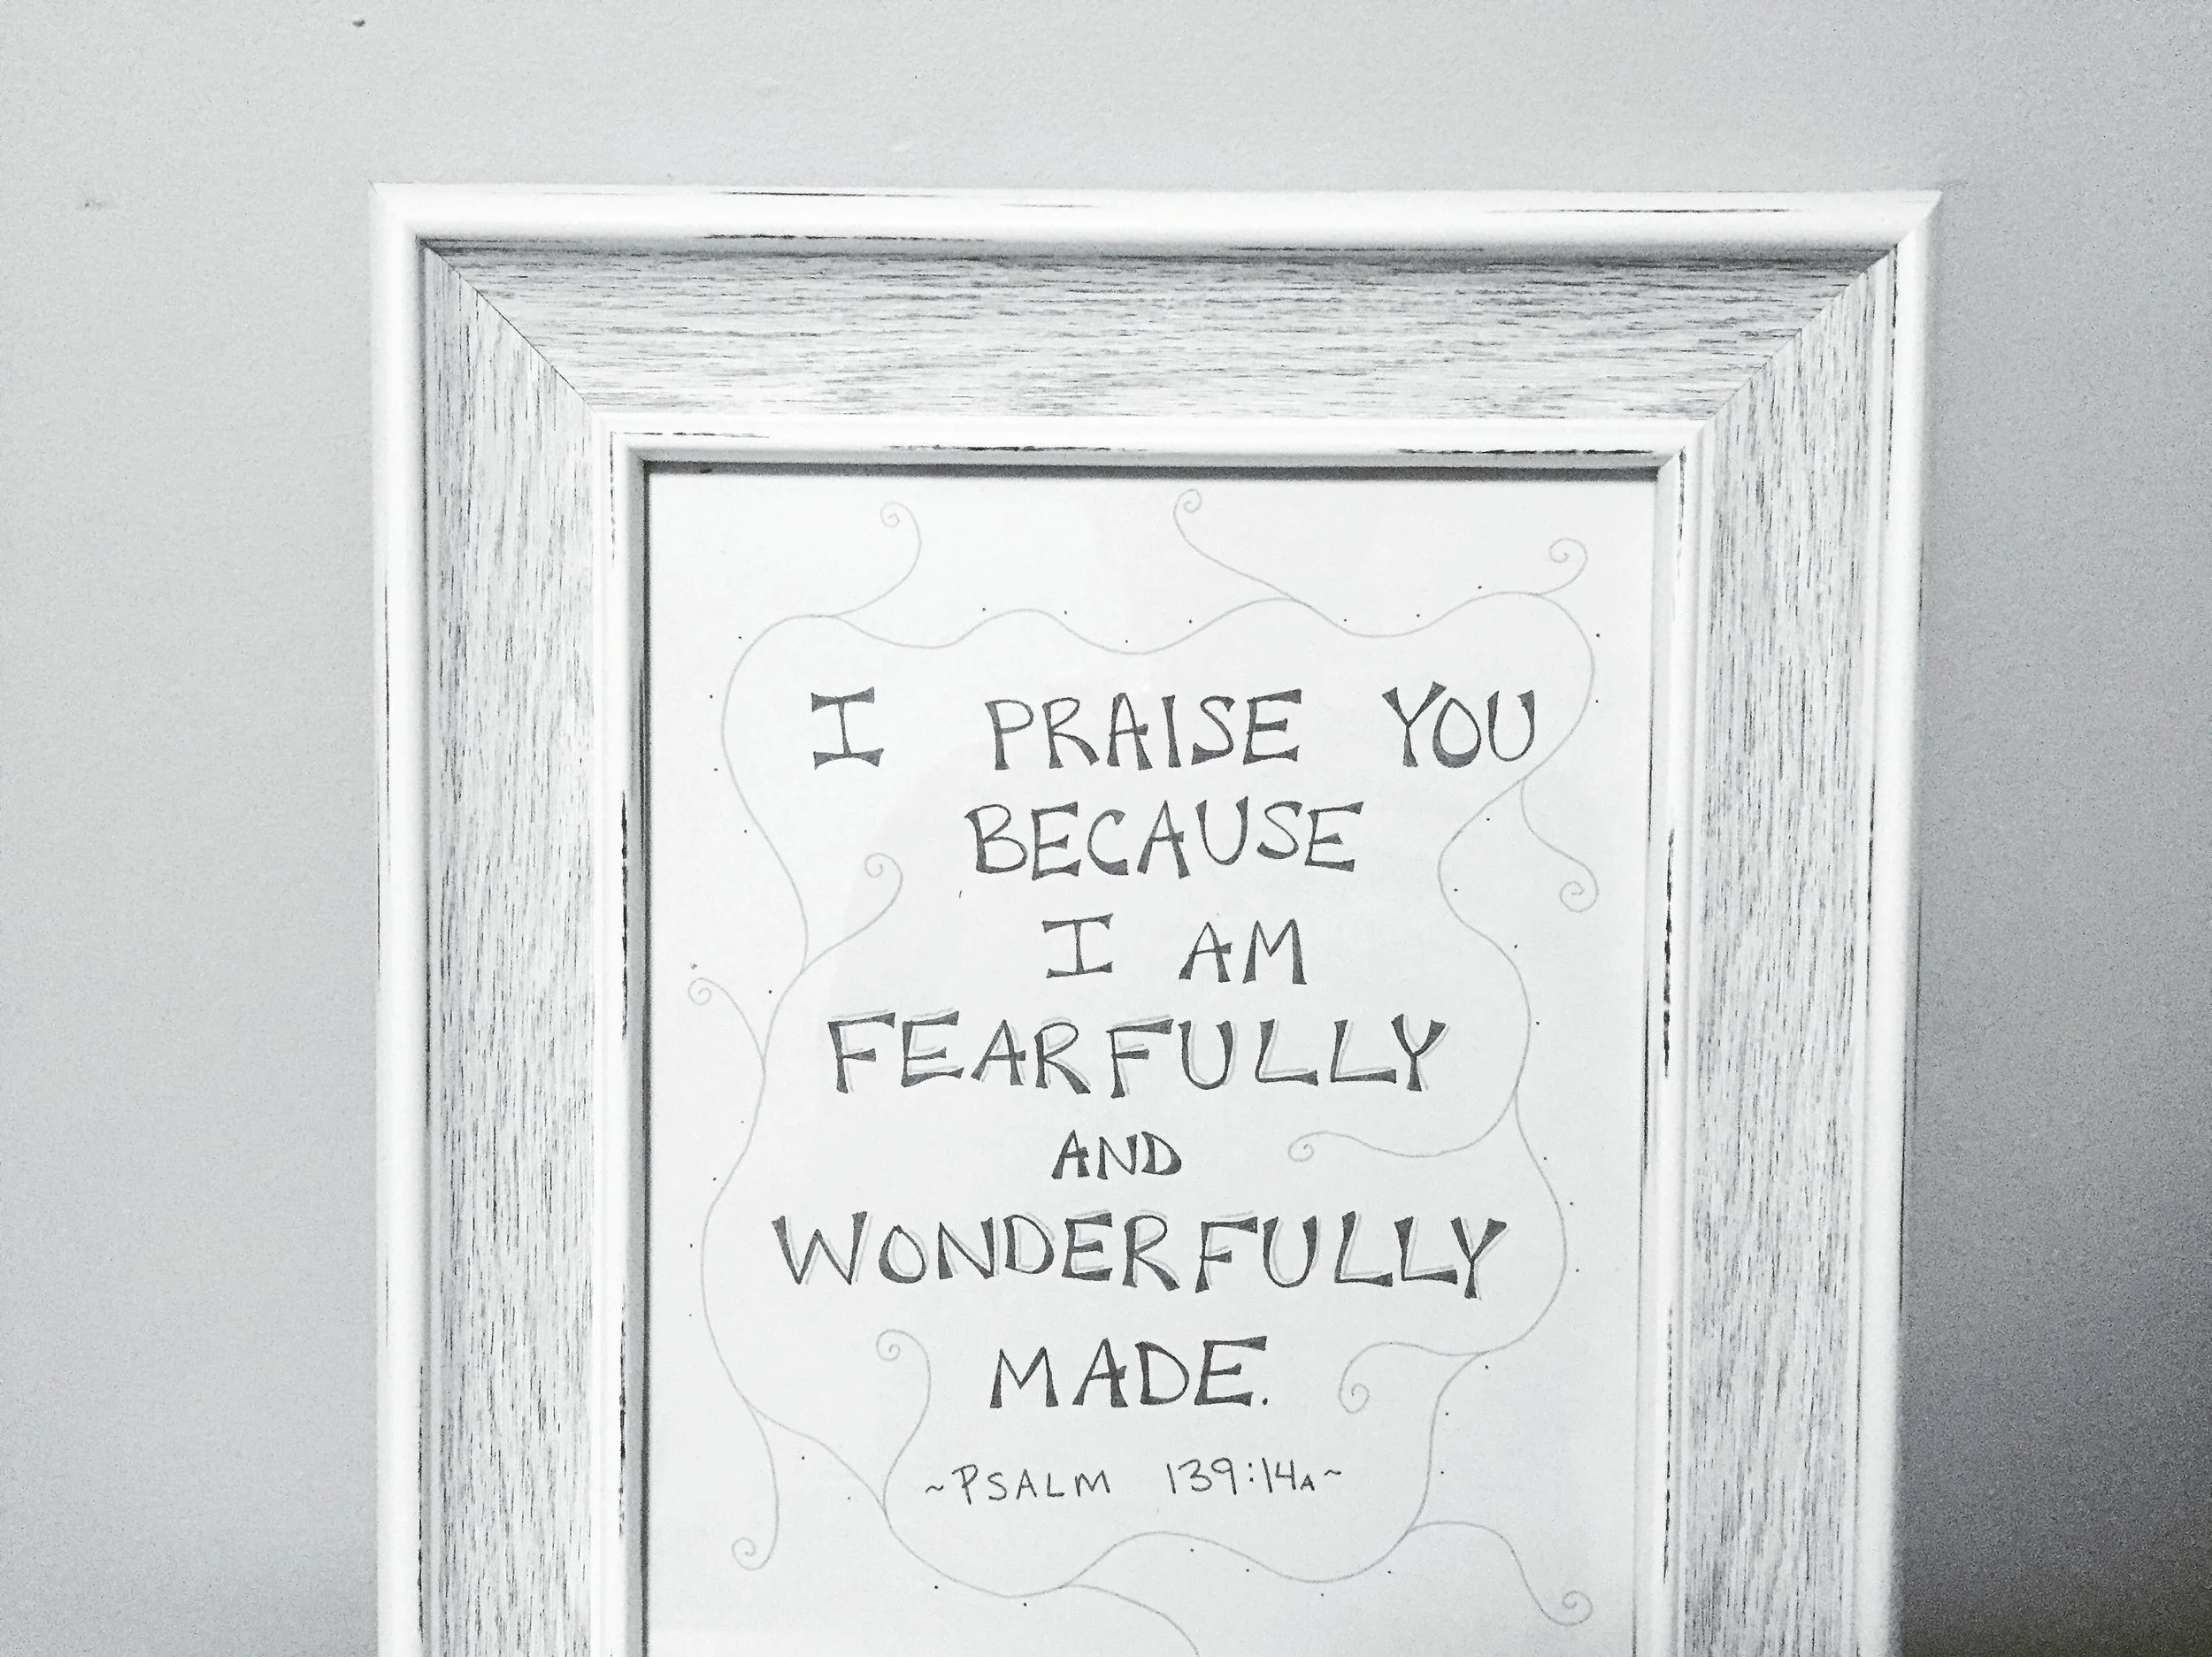 I PRAISE YOU
BECAUSE
I AM
FEARFULLY
AND
WONDERFULLY
MADE.
~PSALM 139:14A~